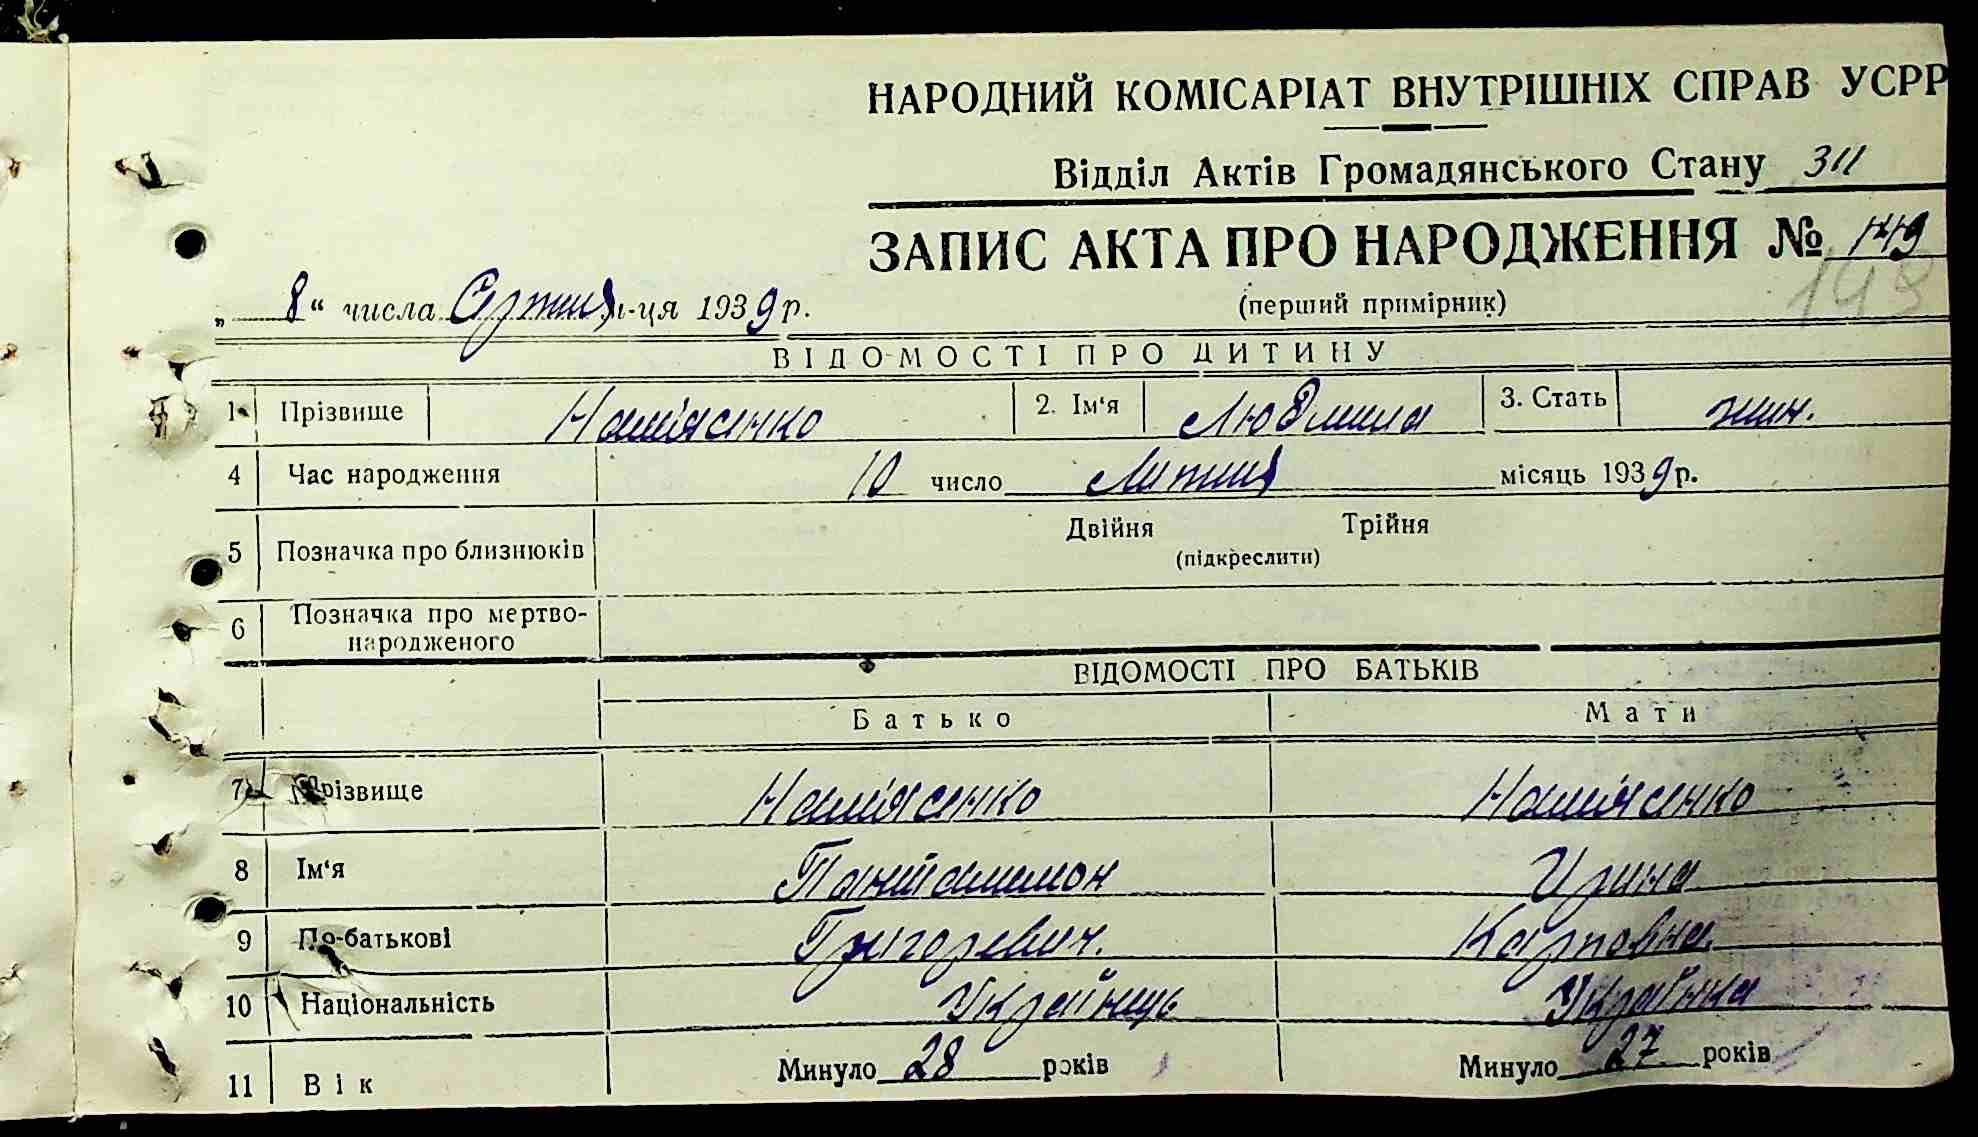 НАРОДНИЙ КОМІСАРІАТ ВНУТРІШНІХ СПРАВ УСРР
Відділ Актів Громадянського Стану 311
ЗАПИС АКТА ПРО НАРОДЖЕННЯ № 149
(перший примірник)
„ 8 “ числа м-ця 1939 р.
ВІДОМОСТІ ПРО ДИТИНУ
1 Прізвище 2. Ім‘я Людмила 3. Стать жін.
4 Час народження 10 число місяць 1939 р.
5 Позначка про близнюків Двійня Трійня
(підкреслити)
6 Позначка про мертво-
народженого
ВІДОМОСТІ ПРО БАТЬКІВ
Батько Мати
7 Прізвище
8 Ім‘я Пантал­имон Ирина
9 По-батькові Григоревич. Карповна.
10 Національність Українець Українка
11 Вік Минуло 28 років Минуло 27 років